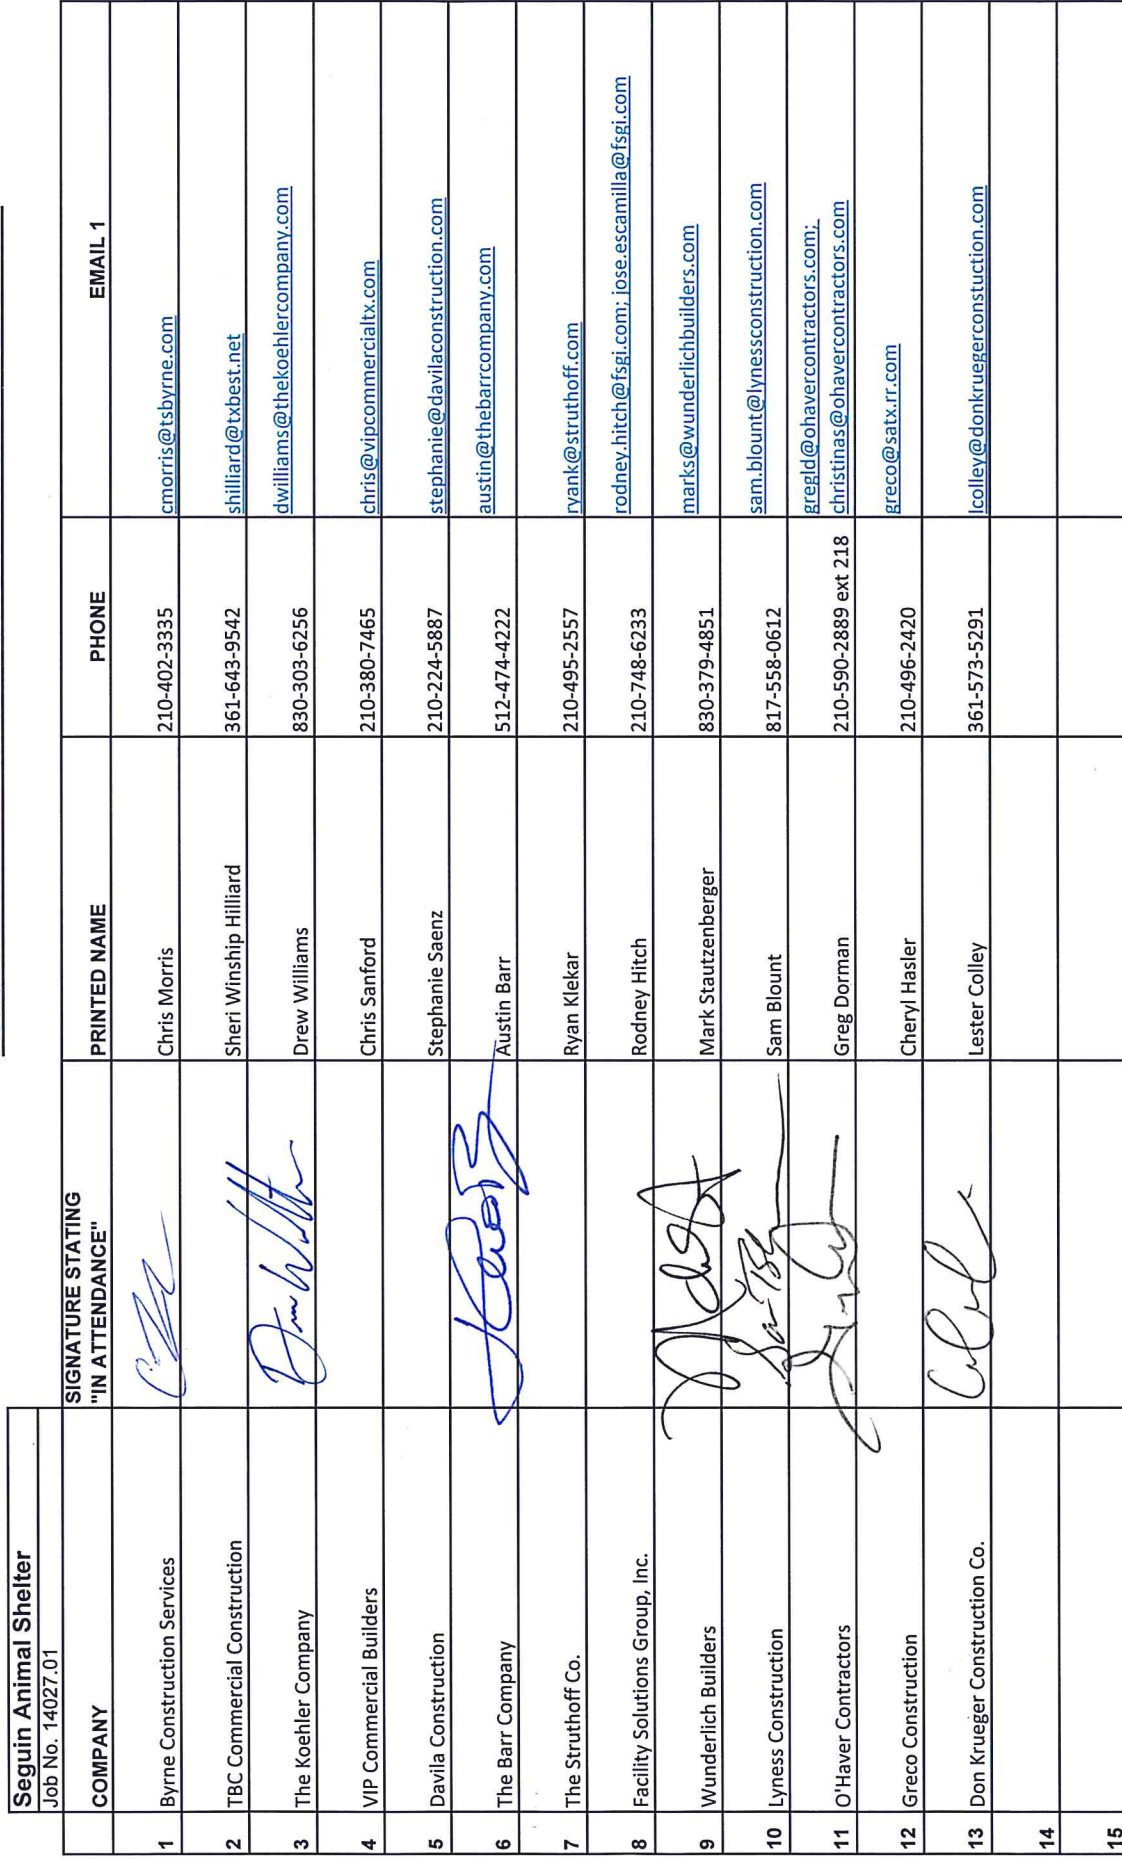 Seguin Animal Shelter
Job No. 14027.01
COMPANY SIGNATURE STATING "IN ATTENDANCE" PRINTED NAME PHONE EMAIL 1
1 Byrne Construction Services Chris Morris 210-402-3335 cmorris@tsbyrne.com
2 TBC Commercial Construction Sheri Winship Hilliard 361-643-9542 shilliard@txbest.net
3 The Koehler Company Drew Williams 830-303-6256 dwilliams@thekoehlercompany.com
4 VIP Commercial Builders Chris Sanford 210-380-7465 chris@vipcommercialtx.com
5 Davila Construction Stephanie Saenz 210-224-5887 stephanie@davilaconstruction.com
6 The Barr Company Austin Barr 512-474-4222 austin@thebarrcompany.com
7 The Struthoff Co. Ryan Klekar 210-495-2557 ryank@struthoff.com
8 Facility Solutions Group, Inc. Rodney Hitch 210-748-6233 rodney.hitch@fsgi.com; jose.escamilla@fsgi.com
9 Wunderlich Builders Mark Stautzenberger 830-379-4851 marks@wunderlichbuilders.com
10 Lyness Construction Sam Blount 817-558-0612 sam.blount@lynessconstruction.com
11 O'Haver Contractors Greg Dorman 210-590-2889 ext 218 gregld@ohavercontractors.com;
christinas@ohavercontractors.com
12 Greco Construction Cheryl Hasler 210-496-2420 greco@satx.rr.com
13 Don Krueger Construction Co. Lester Colley 361-573-5291 lcolley@donkruegerconstuction.com
14
15